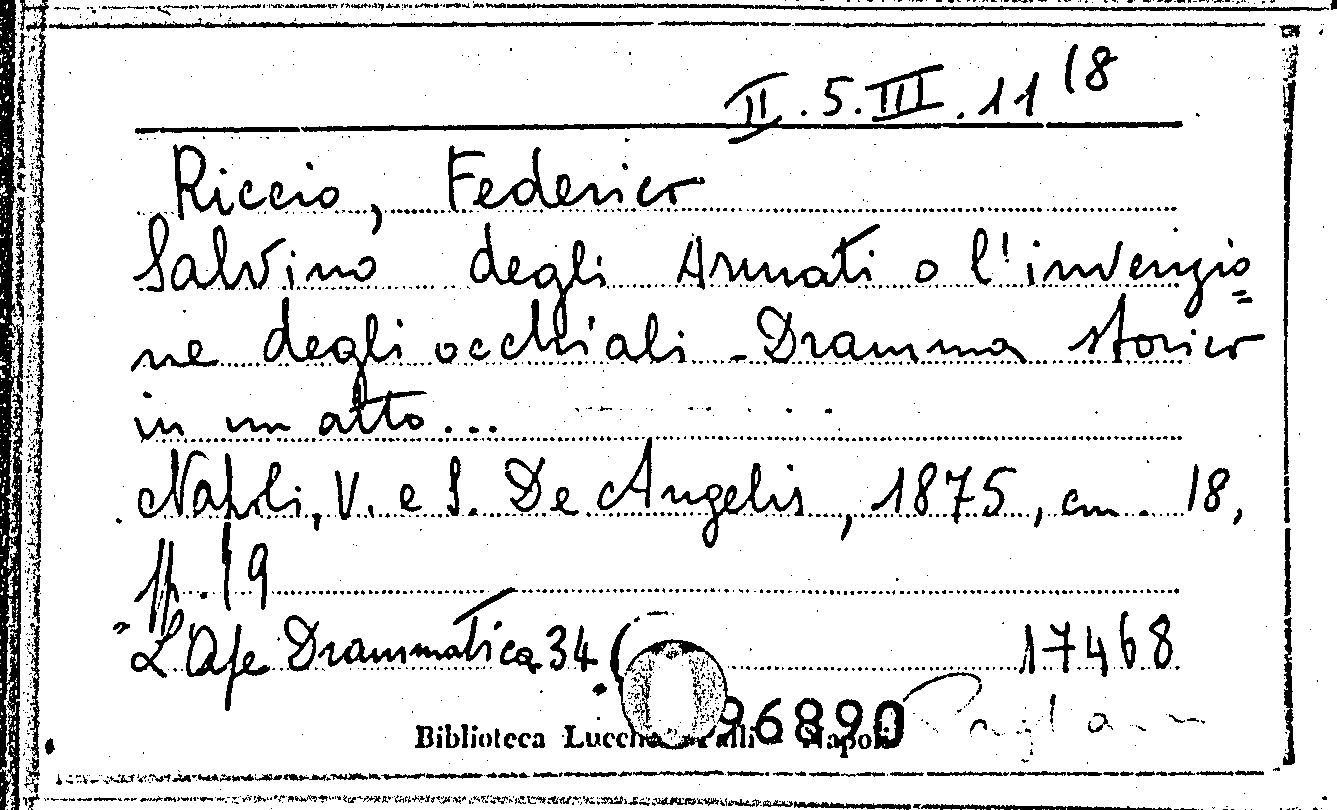 II.5.III.11 18
Riccio, Federico
Salvino degli Armati o l'invenzio=
ne degli occhiali - Dramma storico
in un atto...
Napoli, V. e S. De Angelis, 1875, cm. 18,
pp. 19
"L'Ape Drammatica 34 ( 17468
96890
Biblioteca Lucchesi Palli - Napoli